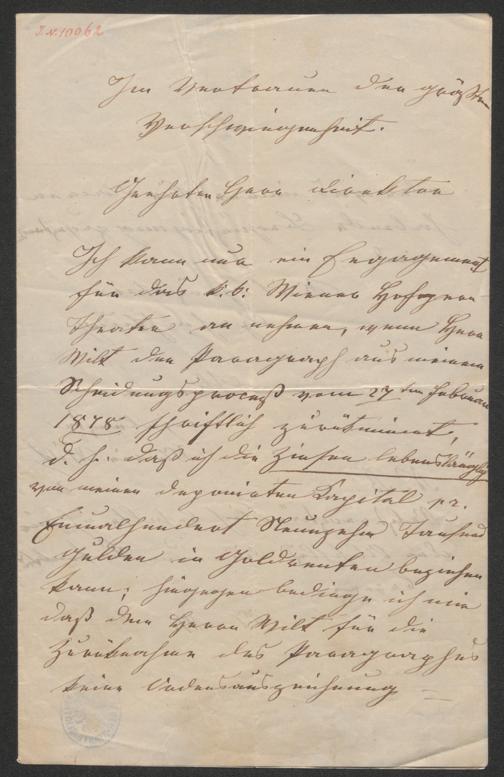 I.N. 10062
Im Vertrauen der größten
Verschwiegenheit.
Geehrter Herr Direktor
Ich kann nur ein Engagement
für das k. k. Wiener Hofopern
Theater, an nehmen, wenn Herr
Wilt den Paragraph aus meinem
Scheidungsproceß vom 27ten Februar
1878 schriftlich zurücknimmt,
d. h. daß ich die Zinsen lebenslänglich
von meinem deponirten Capital pr.
Einmalhundert Neunzehn Tausend
Gulden in Goldrenten beziehen
kann; hingegen bedinge ich mir
daß dem Herrn Wilt für die
Zurücknahme des Paragraphes
keine Ordensauszeichnung